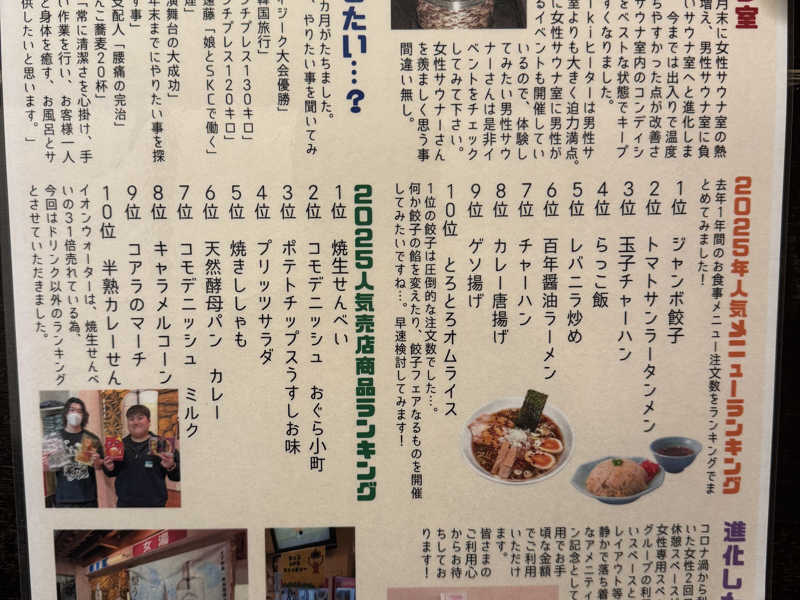 室
月末に女性サウナ室の熱
増え、男性サウナ室に負
いサウナ室へと進化しま
今までは出入りで温度
ちやすかった点が改善さ
サウナ室内のコンディシ
をベストな状態でキープ
すくなりました。
kiヒーターは男性サ
室よりも大きく迫力満点。
に女性サウナ室に男性が
るイベントも開催してい
いるので、体験し
てみたい男性サウ
ナーさんは是非イ
ベントをチェック
してみて下さい。
女性サウナーさん
を羨ましく思う事
間違い無し。
したい…？
カ月がたちました。
、やりたい事を聞いてみ
イジーク大会優勝」
韓国旅行」
チプレス130キロ」
チプレス120キロ」
遠藤「娘とSKCで働く」
演舞台の大成功」
年末までにやりたい事を探
す事」
支配人「腰痛の完治」
んこ蕎麦20杯」
「常に清潔さを心掛け、手
い作業を行い、お客様一人
と身体を癒す、お風呂とサ
供したいと思います。」
2025年人気メニューランキング
去年1年間のお食事メニュー注文数をランキングでま
とめてみました！
1位　ジャンボ餃子
2位　トマトサンラータンメン
3位　玉子チャーハン
4位　らっこ飯
5位　レバニラ炒め
6位　百年醤油ラーメン
7位　チャーハン
8位　カレー唐揚げ
9位　ゲソ揚げ
10位　とろとろオムライス
1位の餃子は圧倒的な注文数でした…。
何か餃子の餡を変えたり、餃子フェアなるものを開催
してみたいですね…。早速検討してみます！
2025人気売店商品ランキング
1位　焼生せんべい
2位　コモデニッシュ　おぐら小町
3位　ポテトチップスうすしお味
4位　プリッツサラダ
5位　焼きししゃも
6位　天然酵母パン　カレー
7位　コモデニッシュ　ミルク
8位　キャラメルコーン
9位　コアラのマーチ
10位　半熟カレーせん
イオンウォーターは、焼生せんべ
いの31倍売れている為、
今回はドリンク以外のランキング
とさせていただきました。
進化した
コロナ渦から利
いた女性2回
休憩スペースが
女性専用スペ
グループの利
いスペースと
レイアウト等
静かで落ち着
なアメニティ
ン記念として
用でお手
頃な金額
でご利用
いただけ
ます。
皆さまの
ご利用心
からお待
ちしてお
ります！
女湯